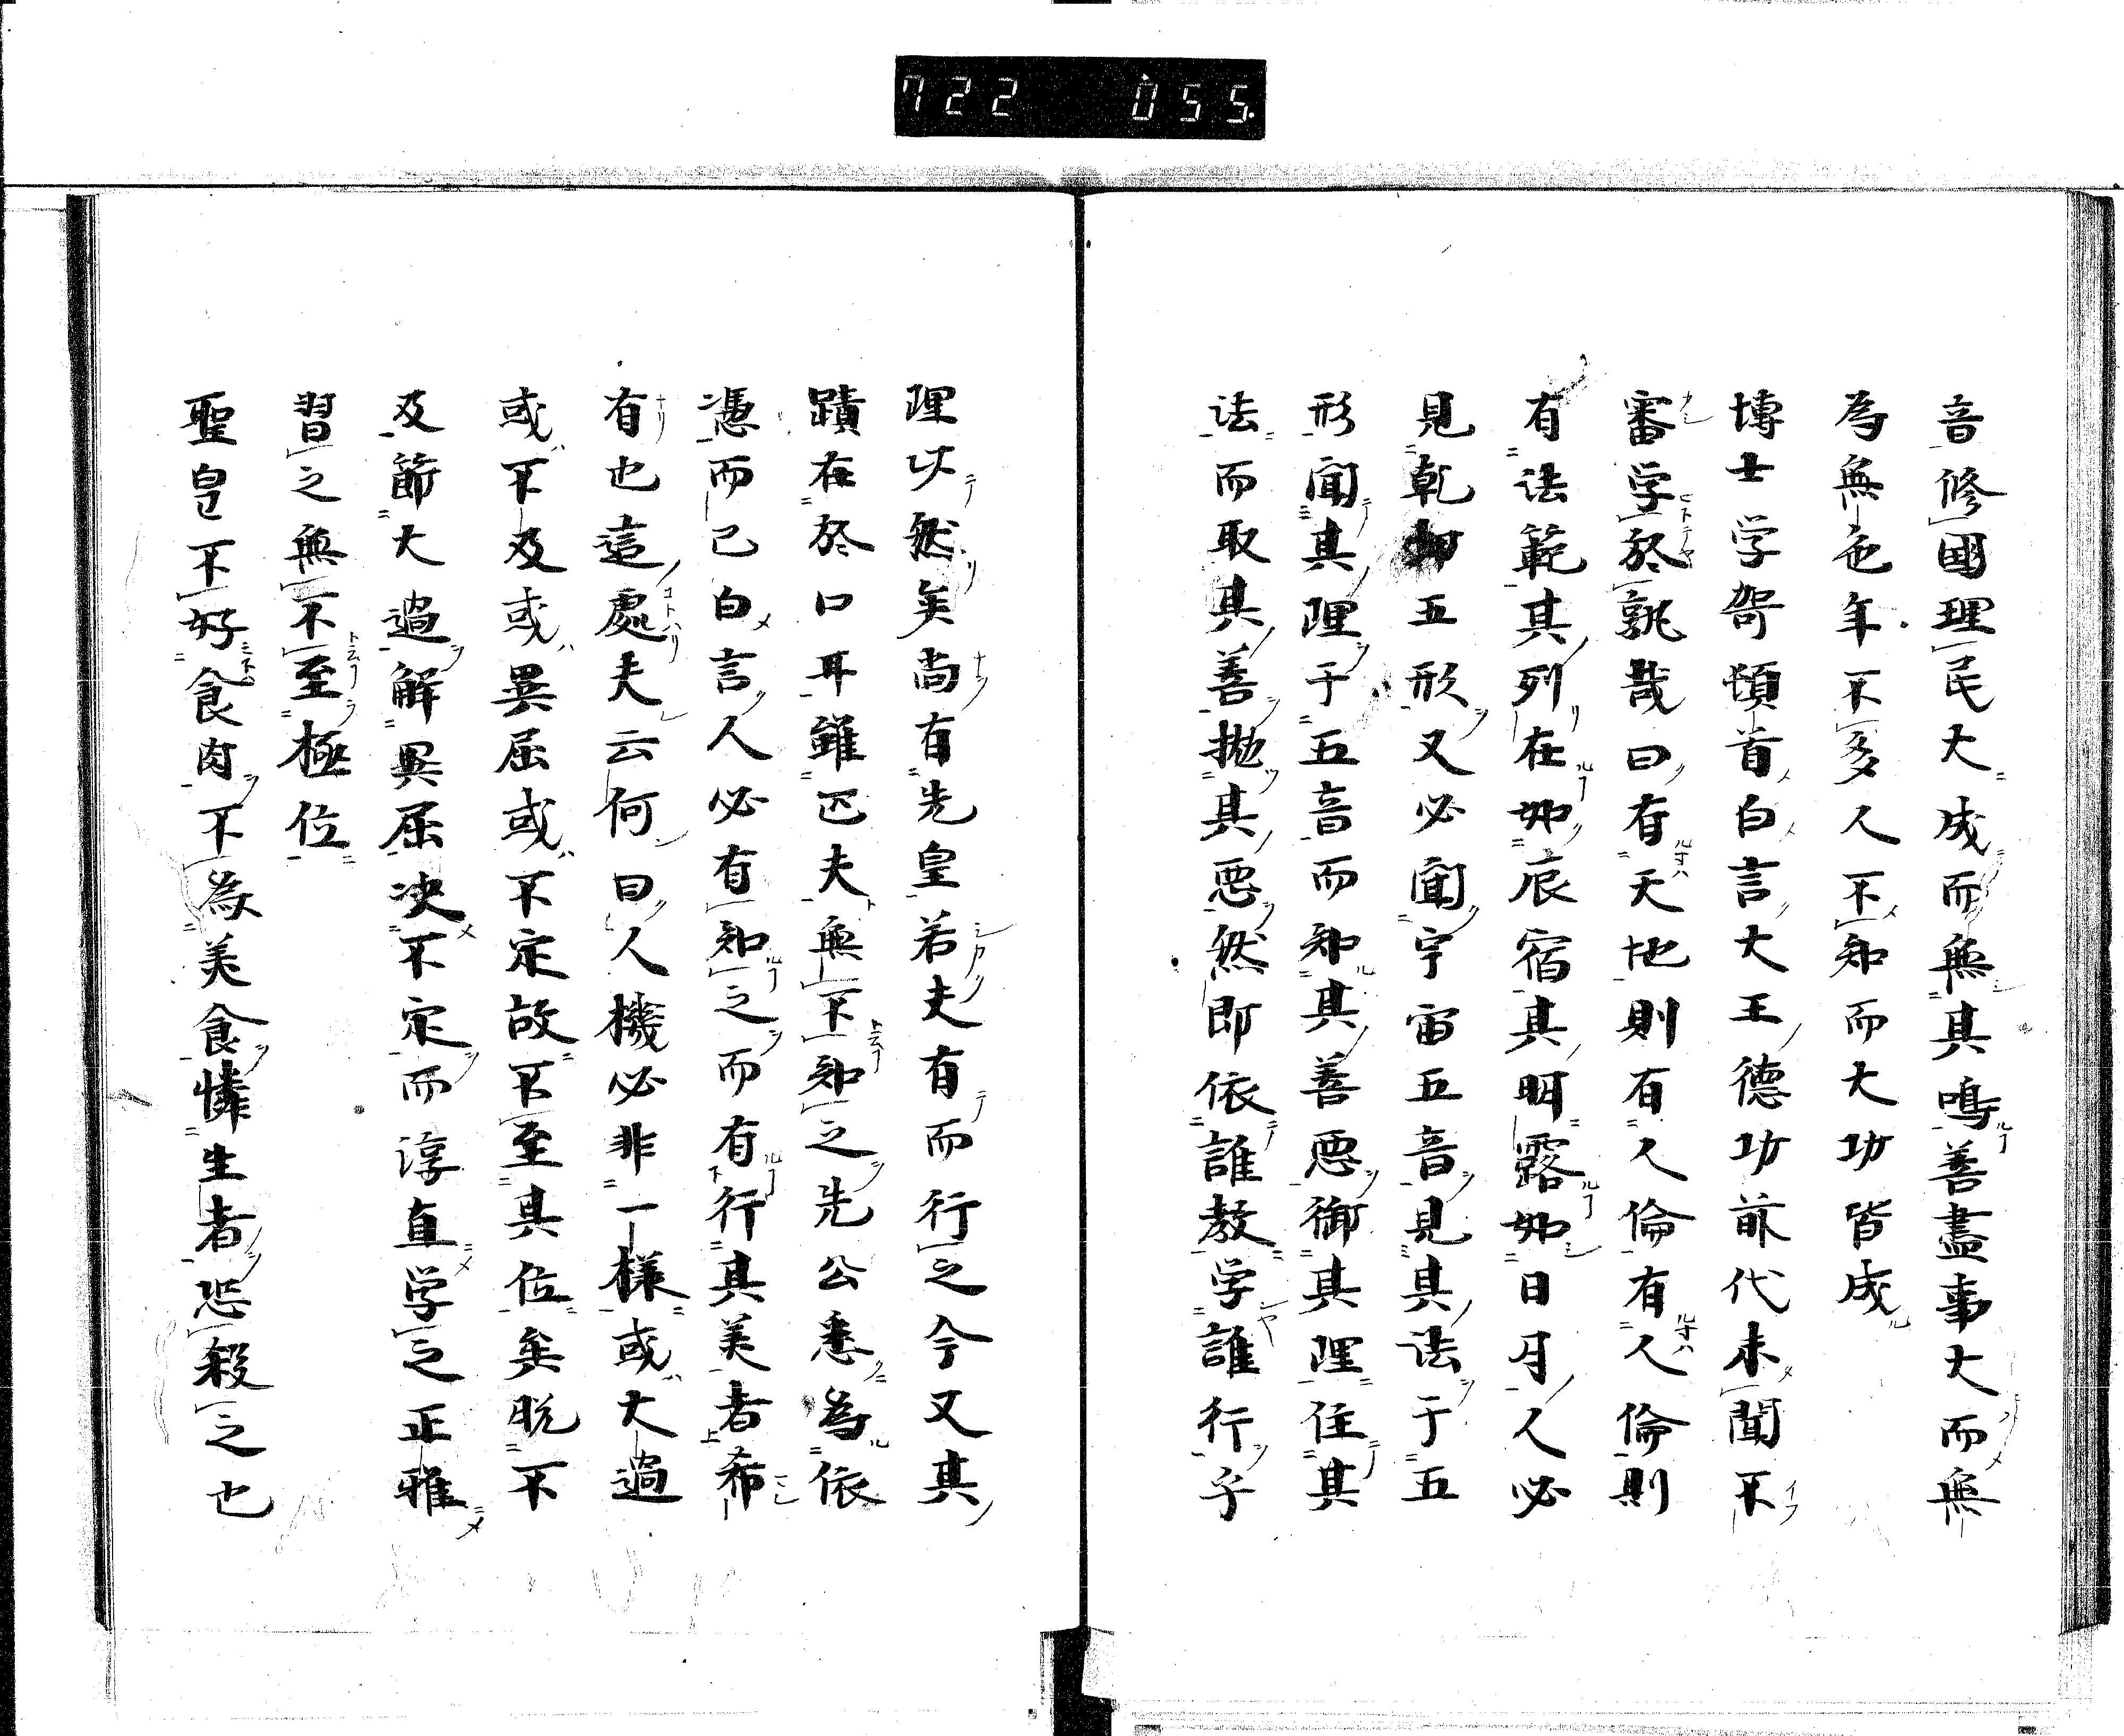 722 055
音修國理民大成而無其鳴善盡事大而無
為無色年不多人不知而大功皆成
博士学哿頓首白言大王德功前代未聞不
審学於孰哉曰有天地則有人倫有人倫則
有法範其列在如辰宿其明露如日月人必
見乾坤五形又必聞宇宙五音見其法于五
形聞其理于五音而知其善悪御其理住其
法而取其善拋其悪然即依誰教学誰行乎
理以然矣尚有先皇若夫有而行之今又其
蹟在於口耳雖匹夫無不知之先公悉為依
憑而已白言人必有知之而有行其美者希
有也這處夫云何曰人機必非一様或大過
或不及或異屈或不定故不至其位矣脱不
及節大過解異屈决不定而淳直学之正雅
習之無不至極位
聖皇不好食肉不為美食憐生者恐殺之也